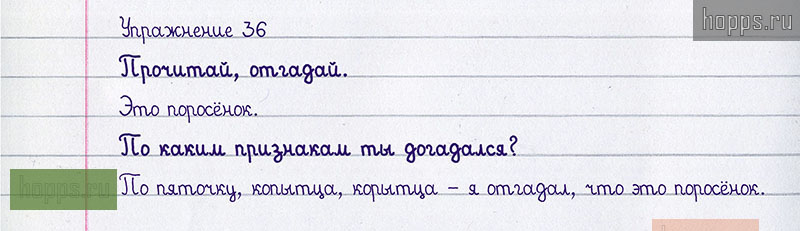 Упражнение 36
hopps.ru
Прочитай, отгадай.
Это поросёнок.
По каким признакам ты догадался?
hopps.ru
По пяточку, копытца, корытца – я отгадал, что это поросёнок.